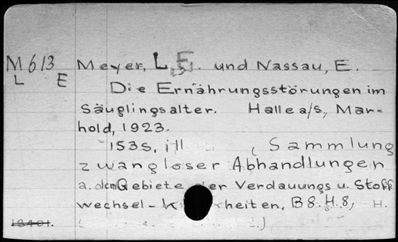 M613 Meyer, L. F. und Nassau, E.
L E Die Ernährungsstörungen im
Säuglingsalter. Halle a/s, Mar-
hold, 1923.
153S, ill ( Sammlung
zwangloser Abhandlungen
a. dem Gebiete der Verdauungs u. Stoff
wechsel-K heiten, B8. H.8, H.
18401.